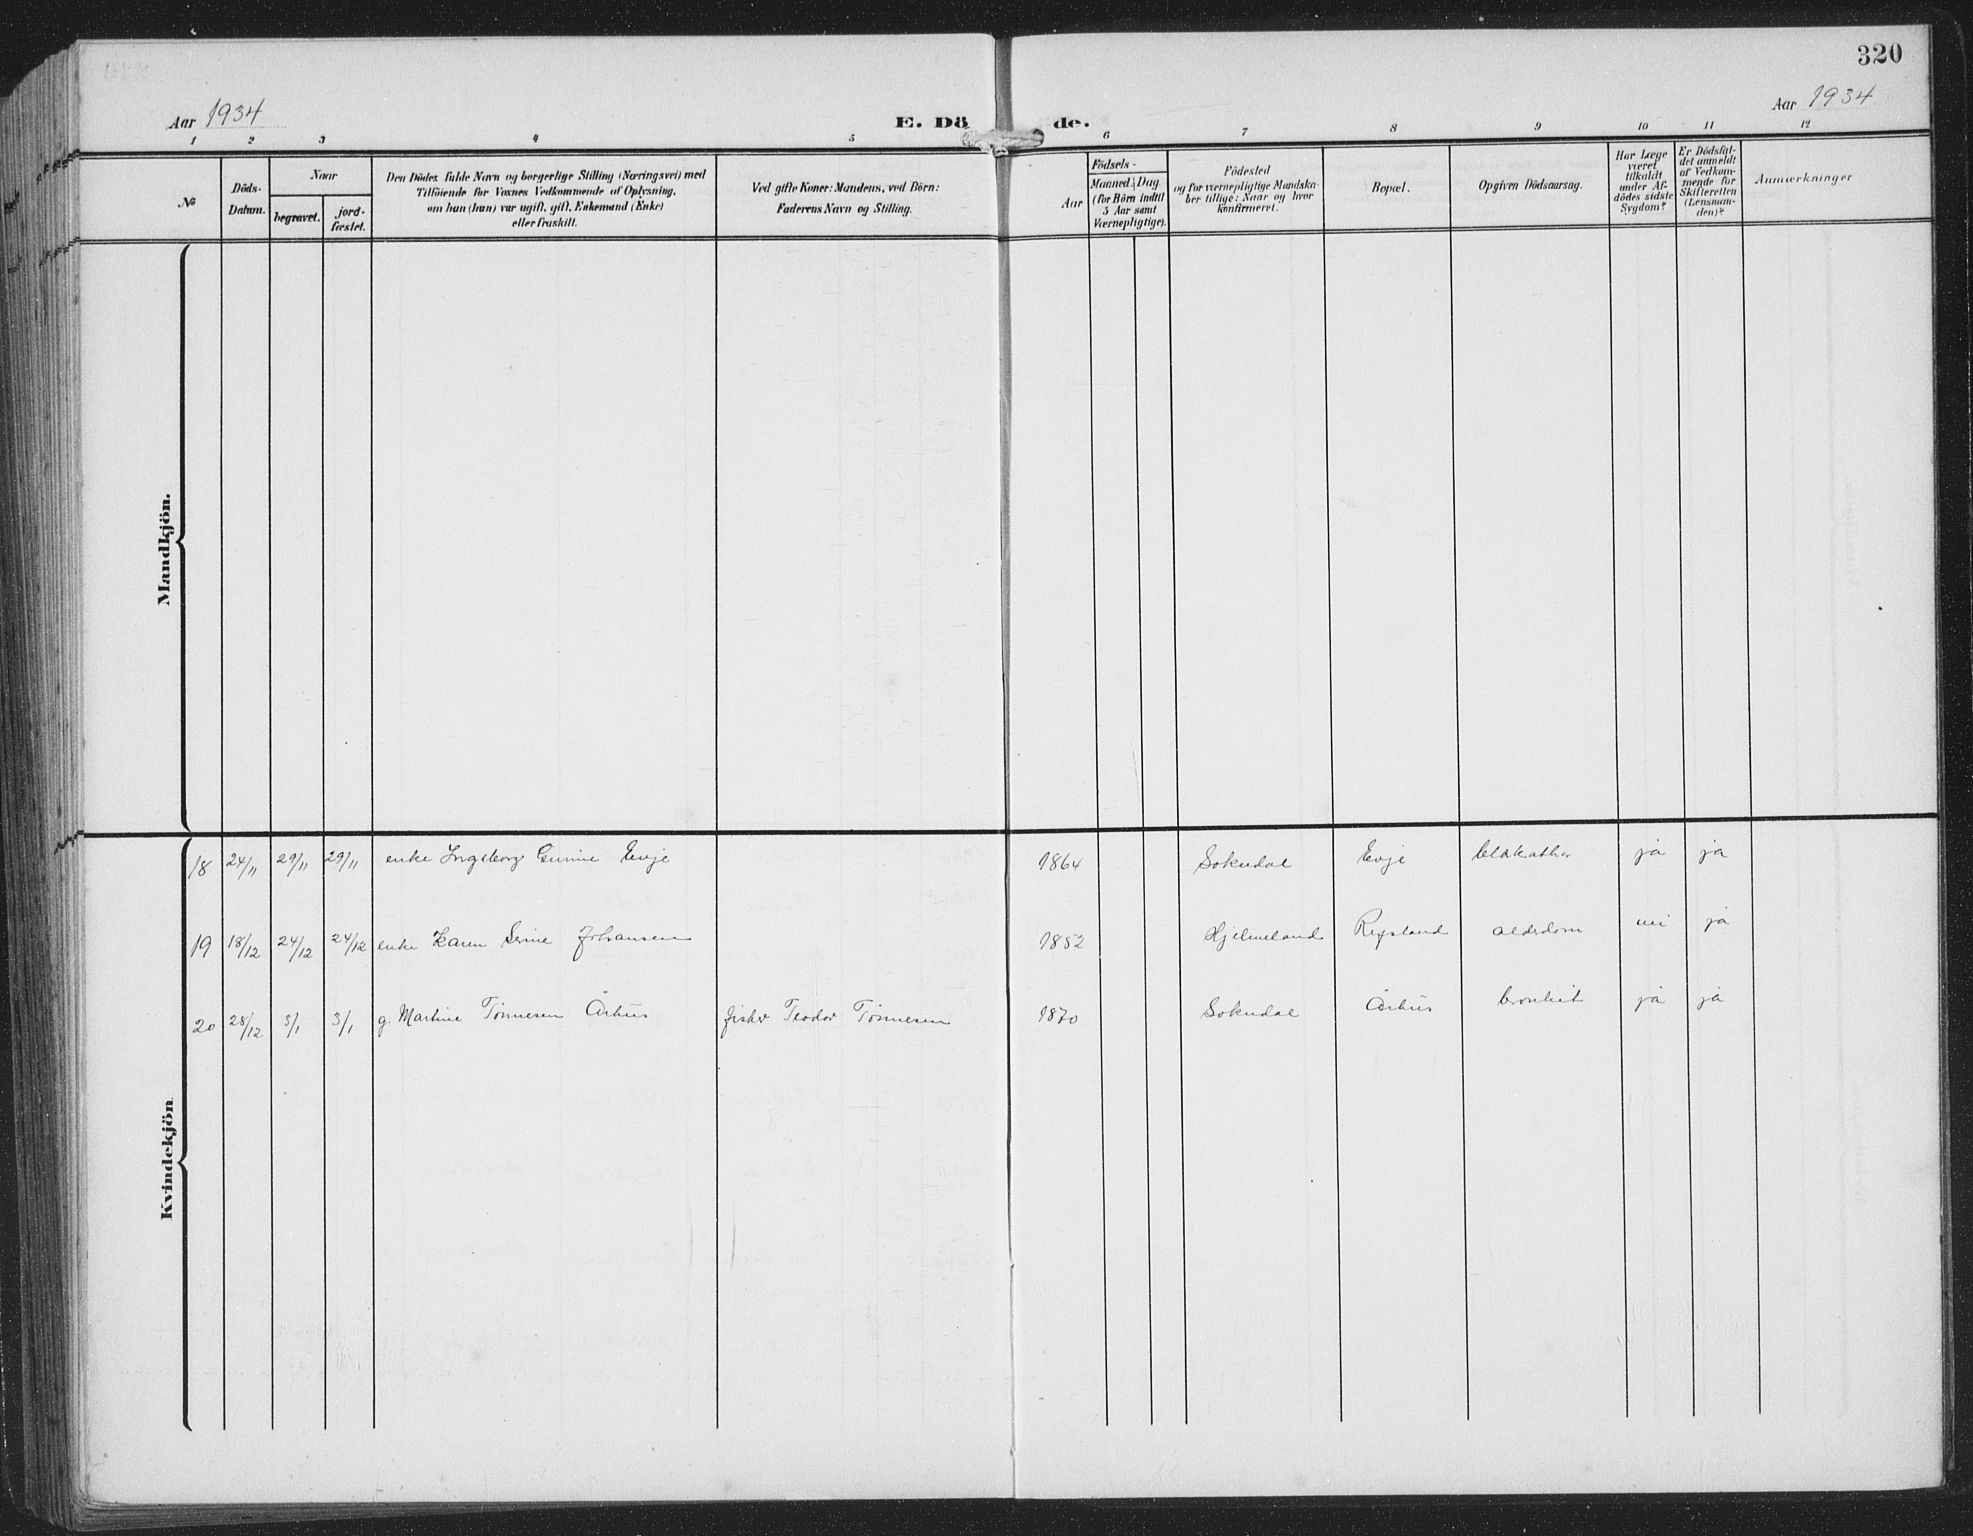 320
Aar 1934
E. Dö de.
Aar 1934
1 2 3 4 5 6 7 8 9 10 11 12
№
Döds-
Datum.
Naar
begravet.
jord-
fæstet.
Den Dödes fulde Navn og borgerlige Stilling (Næringsvei) med
Tilföiende for Voxnes Vedkommende af Oplysning,
om han (hun) var ugift, gift, Enkemand (Enke)
eller fraskilt.
Ved gifte Koner: Mandens, ved Börn:
Faderens Navn og Stilling.
Aar
Födsels-
Maaned. Dag
(for Börn indtil
5 Aar samt
Værnepligtige).
Födested
og for værnepligtige Mandska-
ber tillige: Naar og hvor
konfirmeret.
Bopæl.
Opgiven Dödsaarsag.
Har Læge
været
tilkaldt
under Af-
dödes sidste
Sygdom?
Er Dödsfal-
det anmeldt
af Vedkom-
mende for
Skifteretten
(Lensman-
den)?
Anmærkninger
Mandkjön.
Kvindekjön
18 24/11 29/11 29/11 enke Ingeborg Gurine Evje 1864 Sokndal Evje ja ja
19 18/12 24/12 24/12 enke Karen Serine Johansen 1852 Hjelmeland Refsland alderdom nei ja
20 28/12 3/1 3/1 g. Martine Tönnesen Århus fisker Teodor Tönnesen 1870 Sokndal Århus bronkit ja ja